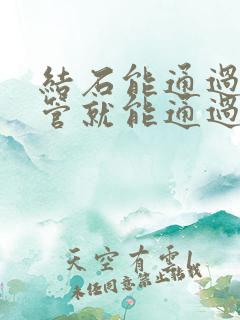 結石能通過
管就能通過
天空有雲
未經同意禁止轉載